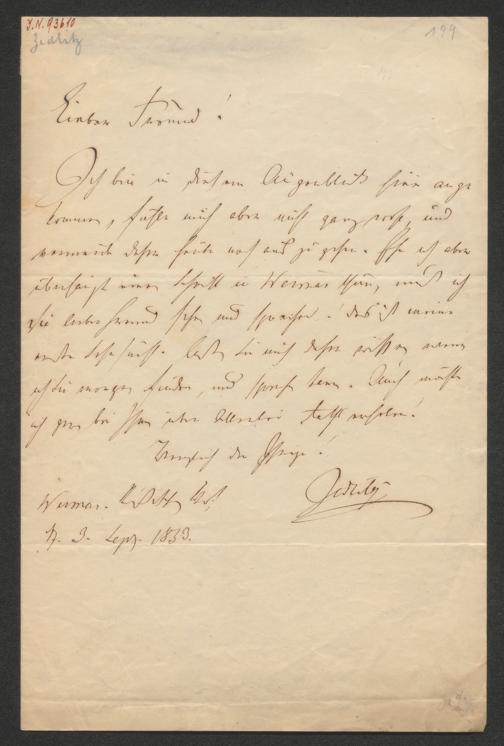 I.N. 93610
Zedlitz
199
Lieber Freund!
Ich bin in diesem Augenblick hier ange
kommen, fühle mich aber nicht ganz wohl, und
vermeide daher heute noch auszugehen. Ehe ich aber
überhaupt einen Schritt in Weimar thue, muß ich
Sie lieber Freund sehen und sprechen. das ist meine
erste Sehnsucht. Lassen Sie mich daher wissen wann
ich Sie morgen finden, und sprechen kann. Auch möchte
ich gern bei Ihnen über Allerlei Rath erholen!
Herzlich der Ihrige!
Zedlitz
Weimar.
d. 3. Sept. 1833.